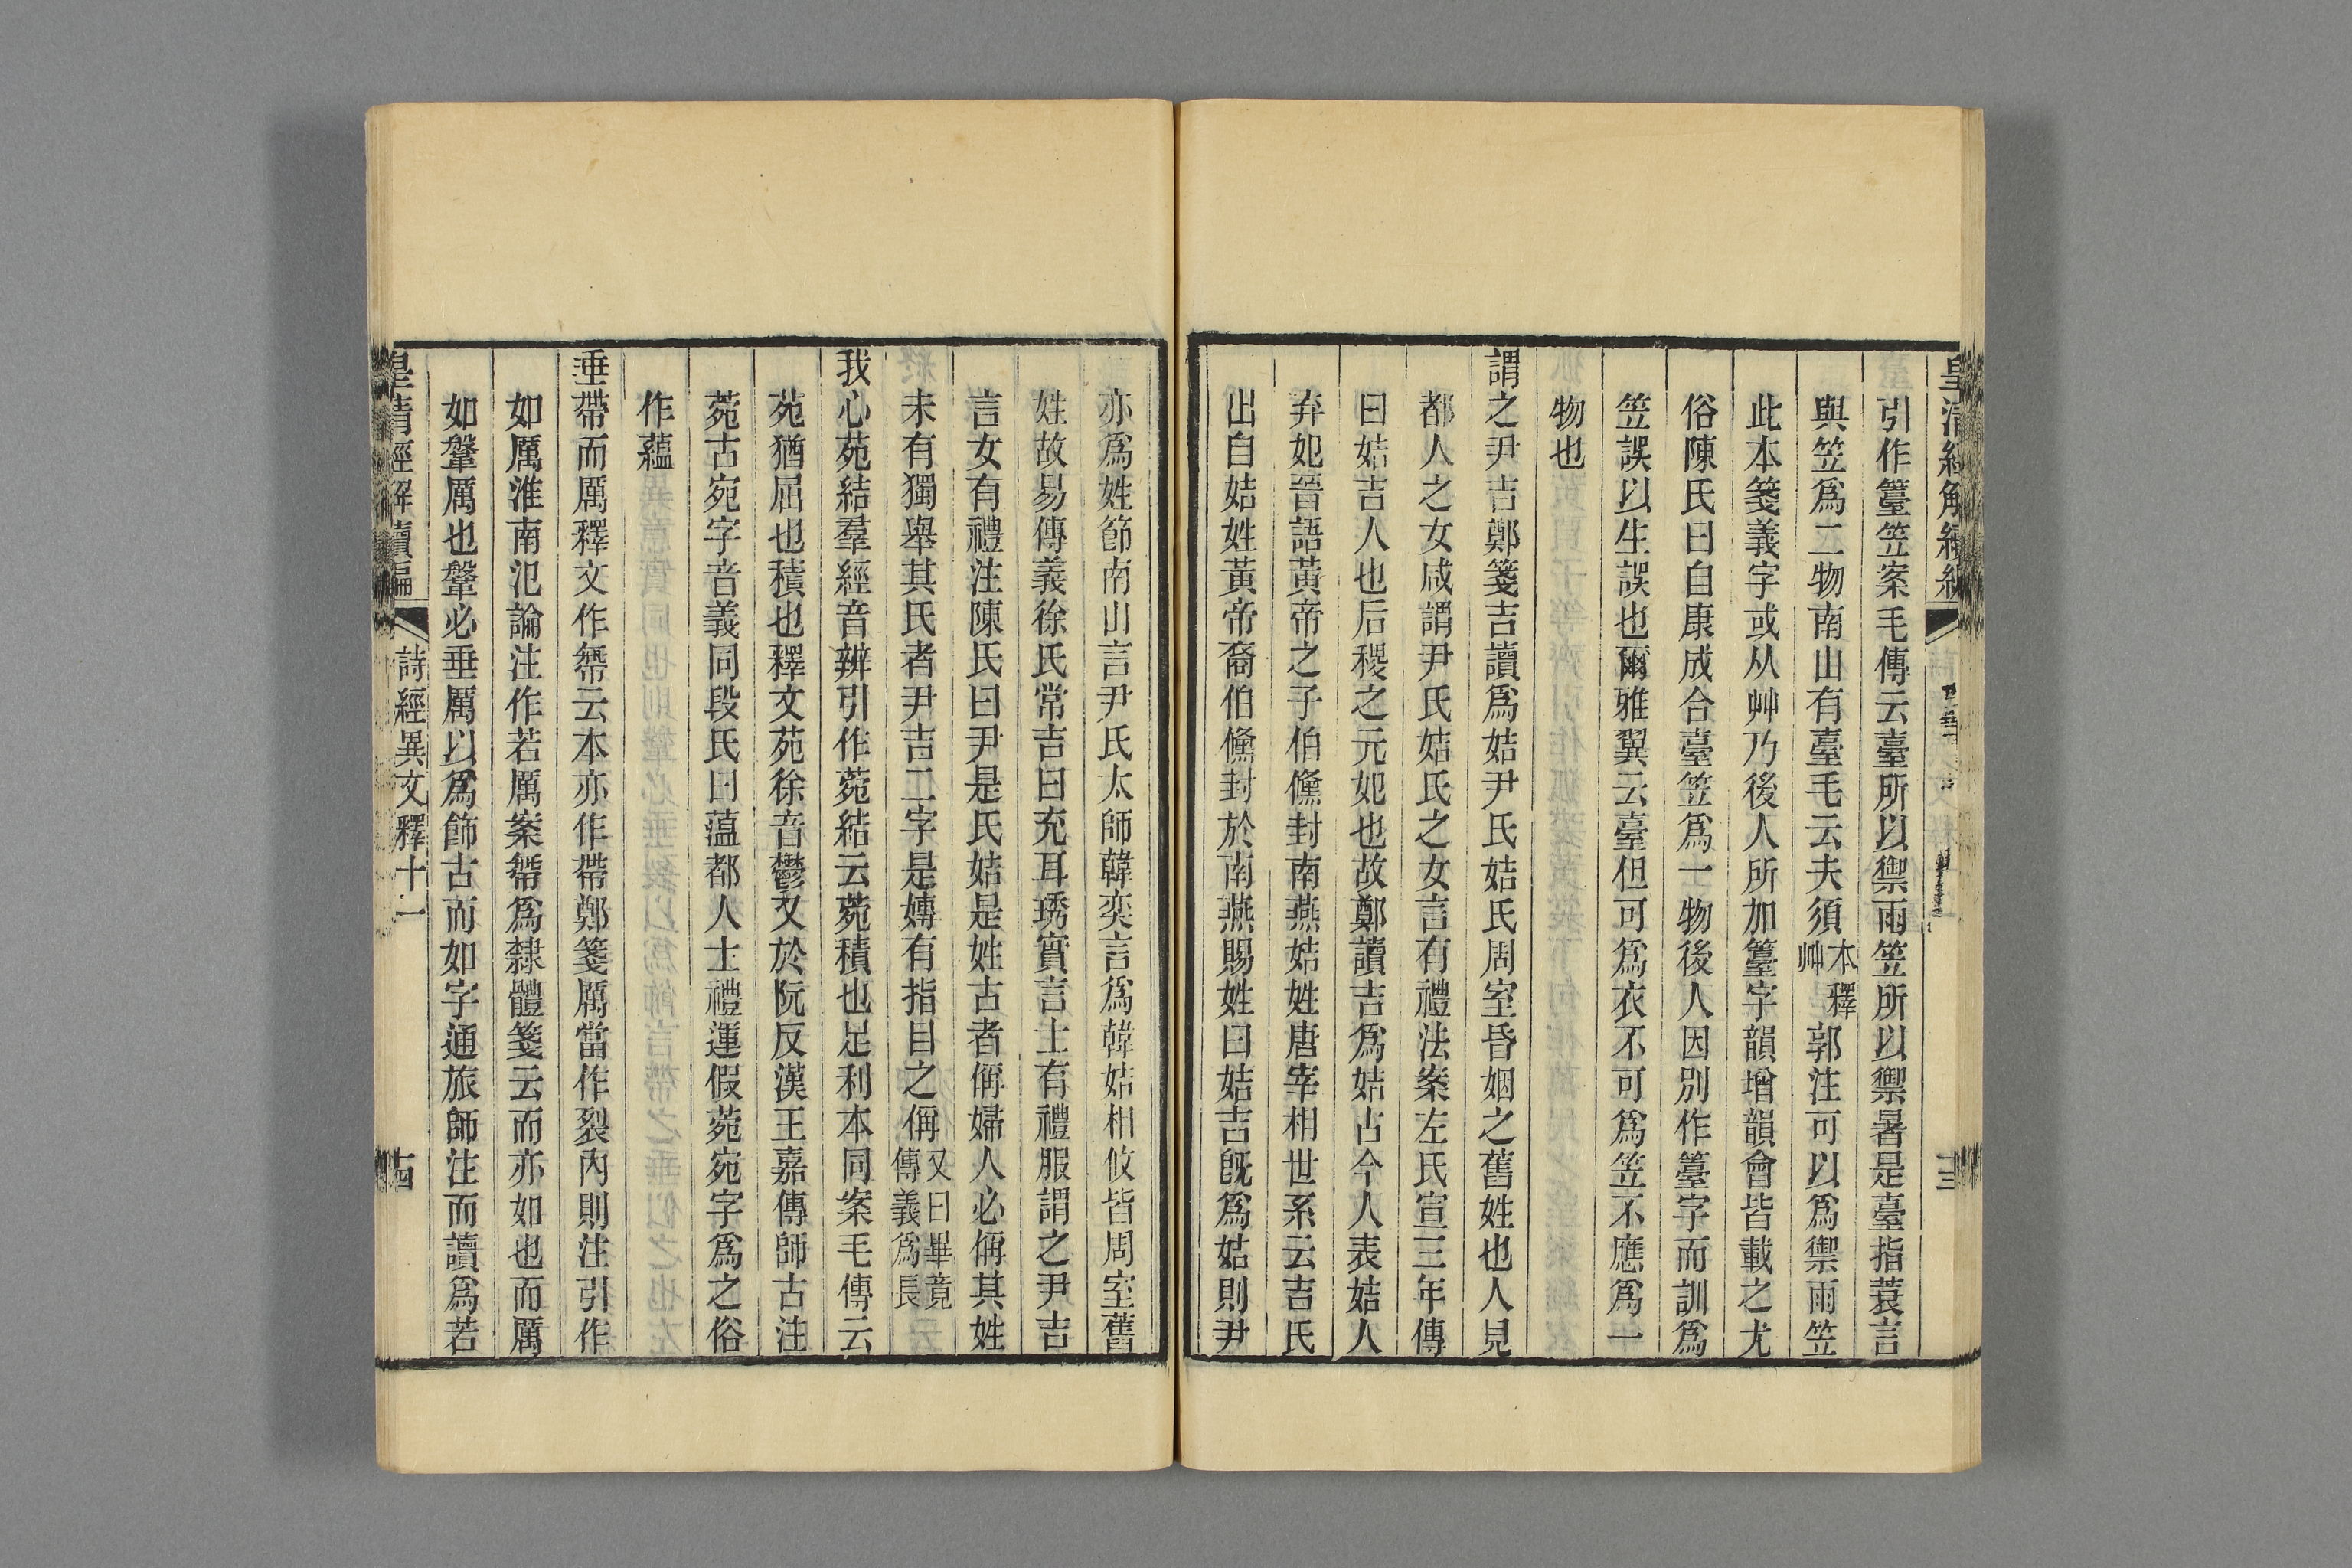 引作薹笠案毛傳云臺所以禦雨笠所以禦暑是臺指蓑言
與笠爲二物南山有臺毛云夫須本釋艸郭注可以爲禦雨笠
此本箋義字或从艸乃後人所加薹字韻增韻會皆載之尤
俗陳氏曰自康成合臺笠爲一物後人因別作薹字而訓爲
笠誤以生誤也爾雅翼云臺但可爲衣不可爲笠不應爲一
物也
謂之尹吉鄭箋吉讀爲姞尹氏姞氏周室昏姻之舊姓也人見
都人之女咸謂尹氏姞氏之女言有禮法案左氏宣三年傳
曰姞吉人也后稷之元妃也故鄭讀吉爲姞古今人表姞人
弃妃晉語黃帝之子伯儵封南燕姞姓唐宰相世系云吉氏
出自姞姓黃帝裔伯儵封於南燕賜姓曰姞吉旣爲姞則尹
亦爲姓節南山言尹氏太師韓奕言爲韓姞相攸皆周室舊
姓故易傳義徐氏常吉曰充耳琇實言士有禮服謂之尹吉
言女有禮注陳氏曰尹是氏姞是姓古者偁婦人必偁其姓
未有獨舉其氏者尹吉二字是嫥有指目之偁又曰畢竟傳義爲長
我心苑結羣經音辨引作菀結云菀積也足利本同案毛傳云
苑猶屈也積也釋文苑徐音鬱又於阮反漢王嘉傳師古注
菀古宛字音義同段氏曰薀都人士禮運假菀宛字爲之俗
作蘊
垂帶而厲釋文作㡜云本亦作帶鄭箋厲當作裂內則注引作
如厲淮南氾論注作若厲案㡜爲隸體箋云而亦如也而厲
如鞶厲也鞶必垂厲以爲飾古而如字通旅師注而讀爲若
皇清經解續編
詩經異文釋十一
十四